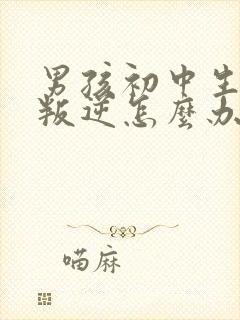 男孩初中生
叛逆怎麼办
喵麻